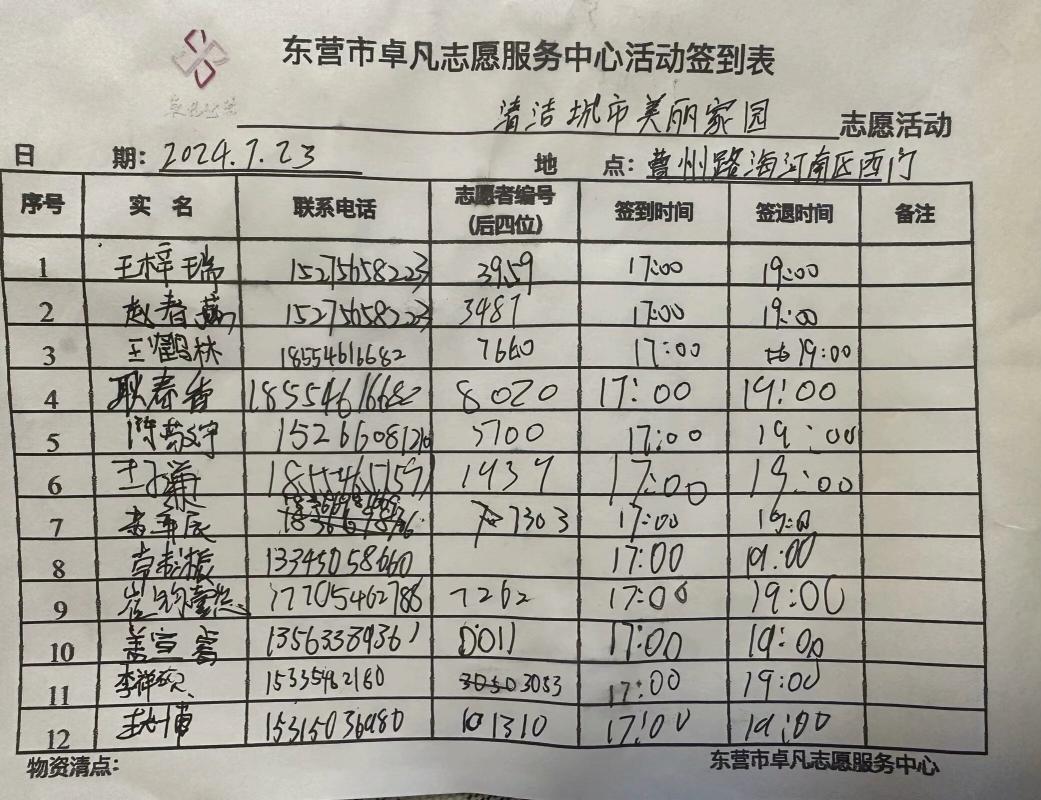 东营市卓凡志愿服务中心活动签到表
卓凡公益
清洁城市美丽家园 志愿活动
日 期: 2024.7.23 地 点: 曹州路海河南区西门
序号 实 名 联系电话 志愿者编号(后四位) 签到时间 签退时间 备注
1 王梓瑞 15275658223 3959 17:00 19:00
2 赵春 15275658223 3487 17:00 19:00
3 王鹤林 18554616682 7660 17:00 19:00
4 耿春香 18554616682 8020 17:00 19:00
5 5700 17:00 19:00
6 1439 17:00 19:00
7 7303 17:00 19:0
8 13345058660 17:00 19:00
9 17705462788 7262 17:00 19:00
10 盖宣睿 0011 17:00 19:00
11 李祥硕 15335462160 3083 17:00 19:00
12 15315036980 1310 17:00 19:00
物资清点: 东营市卓凡志愿服务中心